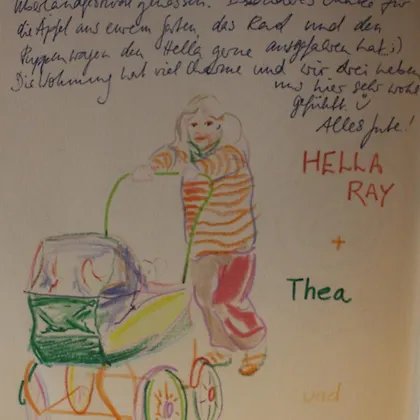 Überlandfestival genossen. Besonderen Danke für
die Äpfel aus eurem Garten, das Rad und den
Puppenwagen den Hella gerne ausgefahren hat :)
Die Wohnung hat viel Charme und wir drei haben
uns hier sehr wohl
gefühlt ☺
Alles Gute!
HELLA
RAY
+
Thea
und